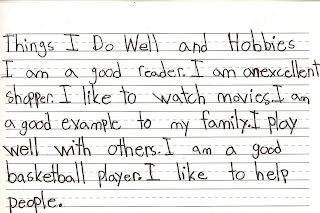 Things I Do Well and Hobbies
I am a good reader. I am an excellent
shopper. I like to watch movies. I am
a good example to my family. I play
well with others. I am a good
basketball player. I like to help
people.